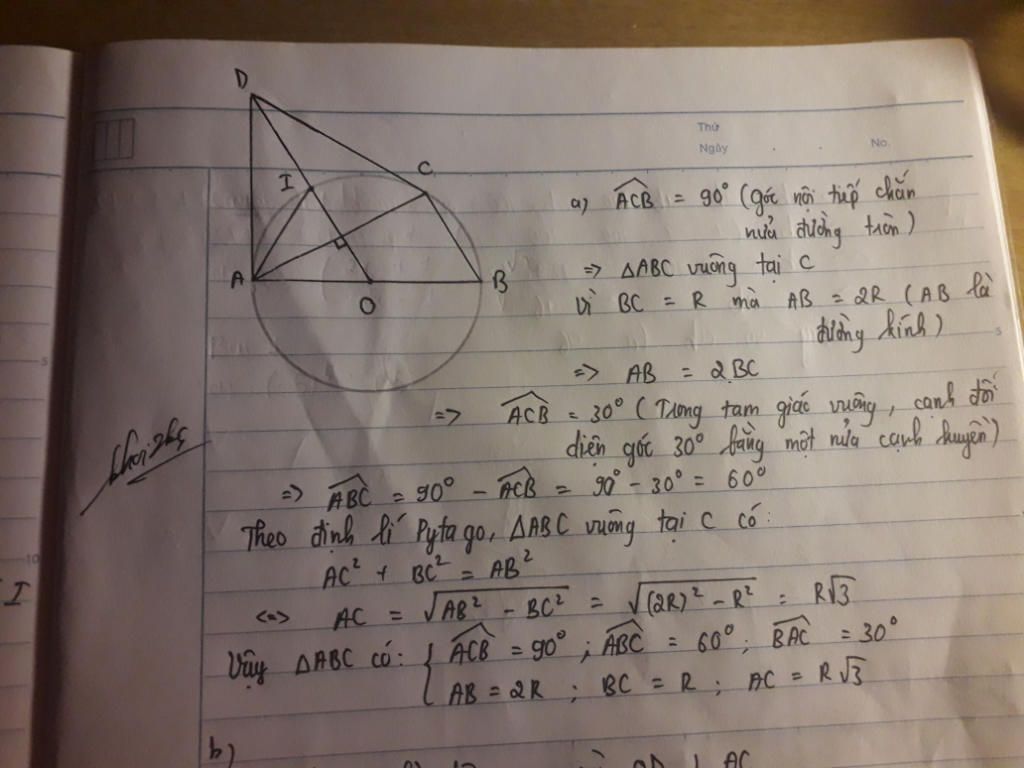 D
Thứ
Ngày . . No.
I
C
A
O
B
a) ACB = 90° (góc nội tiếp chắn
nửa đường tròn)
=> ΔABC vuông tại C
Vì BC = R mà AB = 2R (AB là
đường kính)
=> AB = 2BC
=> ACB = 30° (Trong tam giác vuông, cạnh đối
diện góc 30° bằng một nửa cạnh huyền)
=> ABC = 90° - ACB = 90° - 30° = 60°
Theo định lí Pytago, ΔABC vuông tại C có:
AC² + BC² = AB²
<=> AC = √(AB² - BC²) = √((2R)² - R²) = R√3
Vậy ΔABC có: { ACB = 90° ; ABC = 60° ; BAC = 30°
AB = 2R ; BC = R ; AC = R√3
b)
I
5
10
5